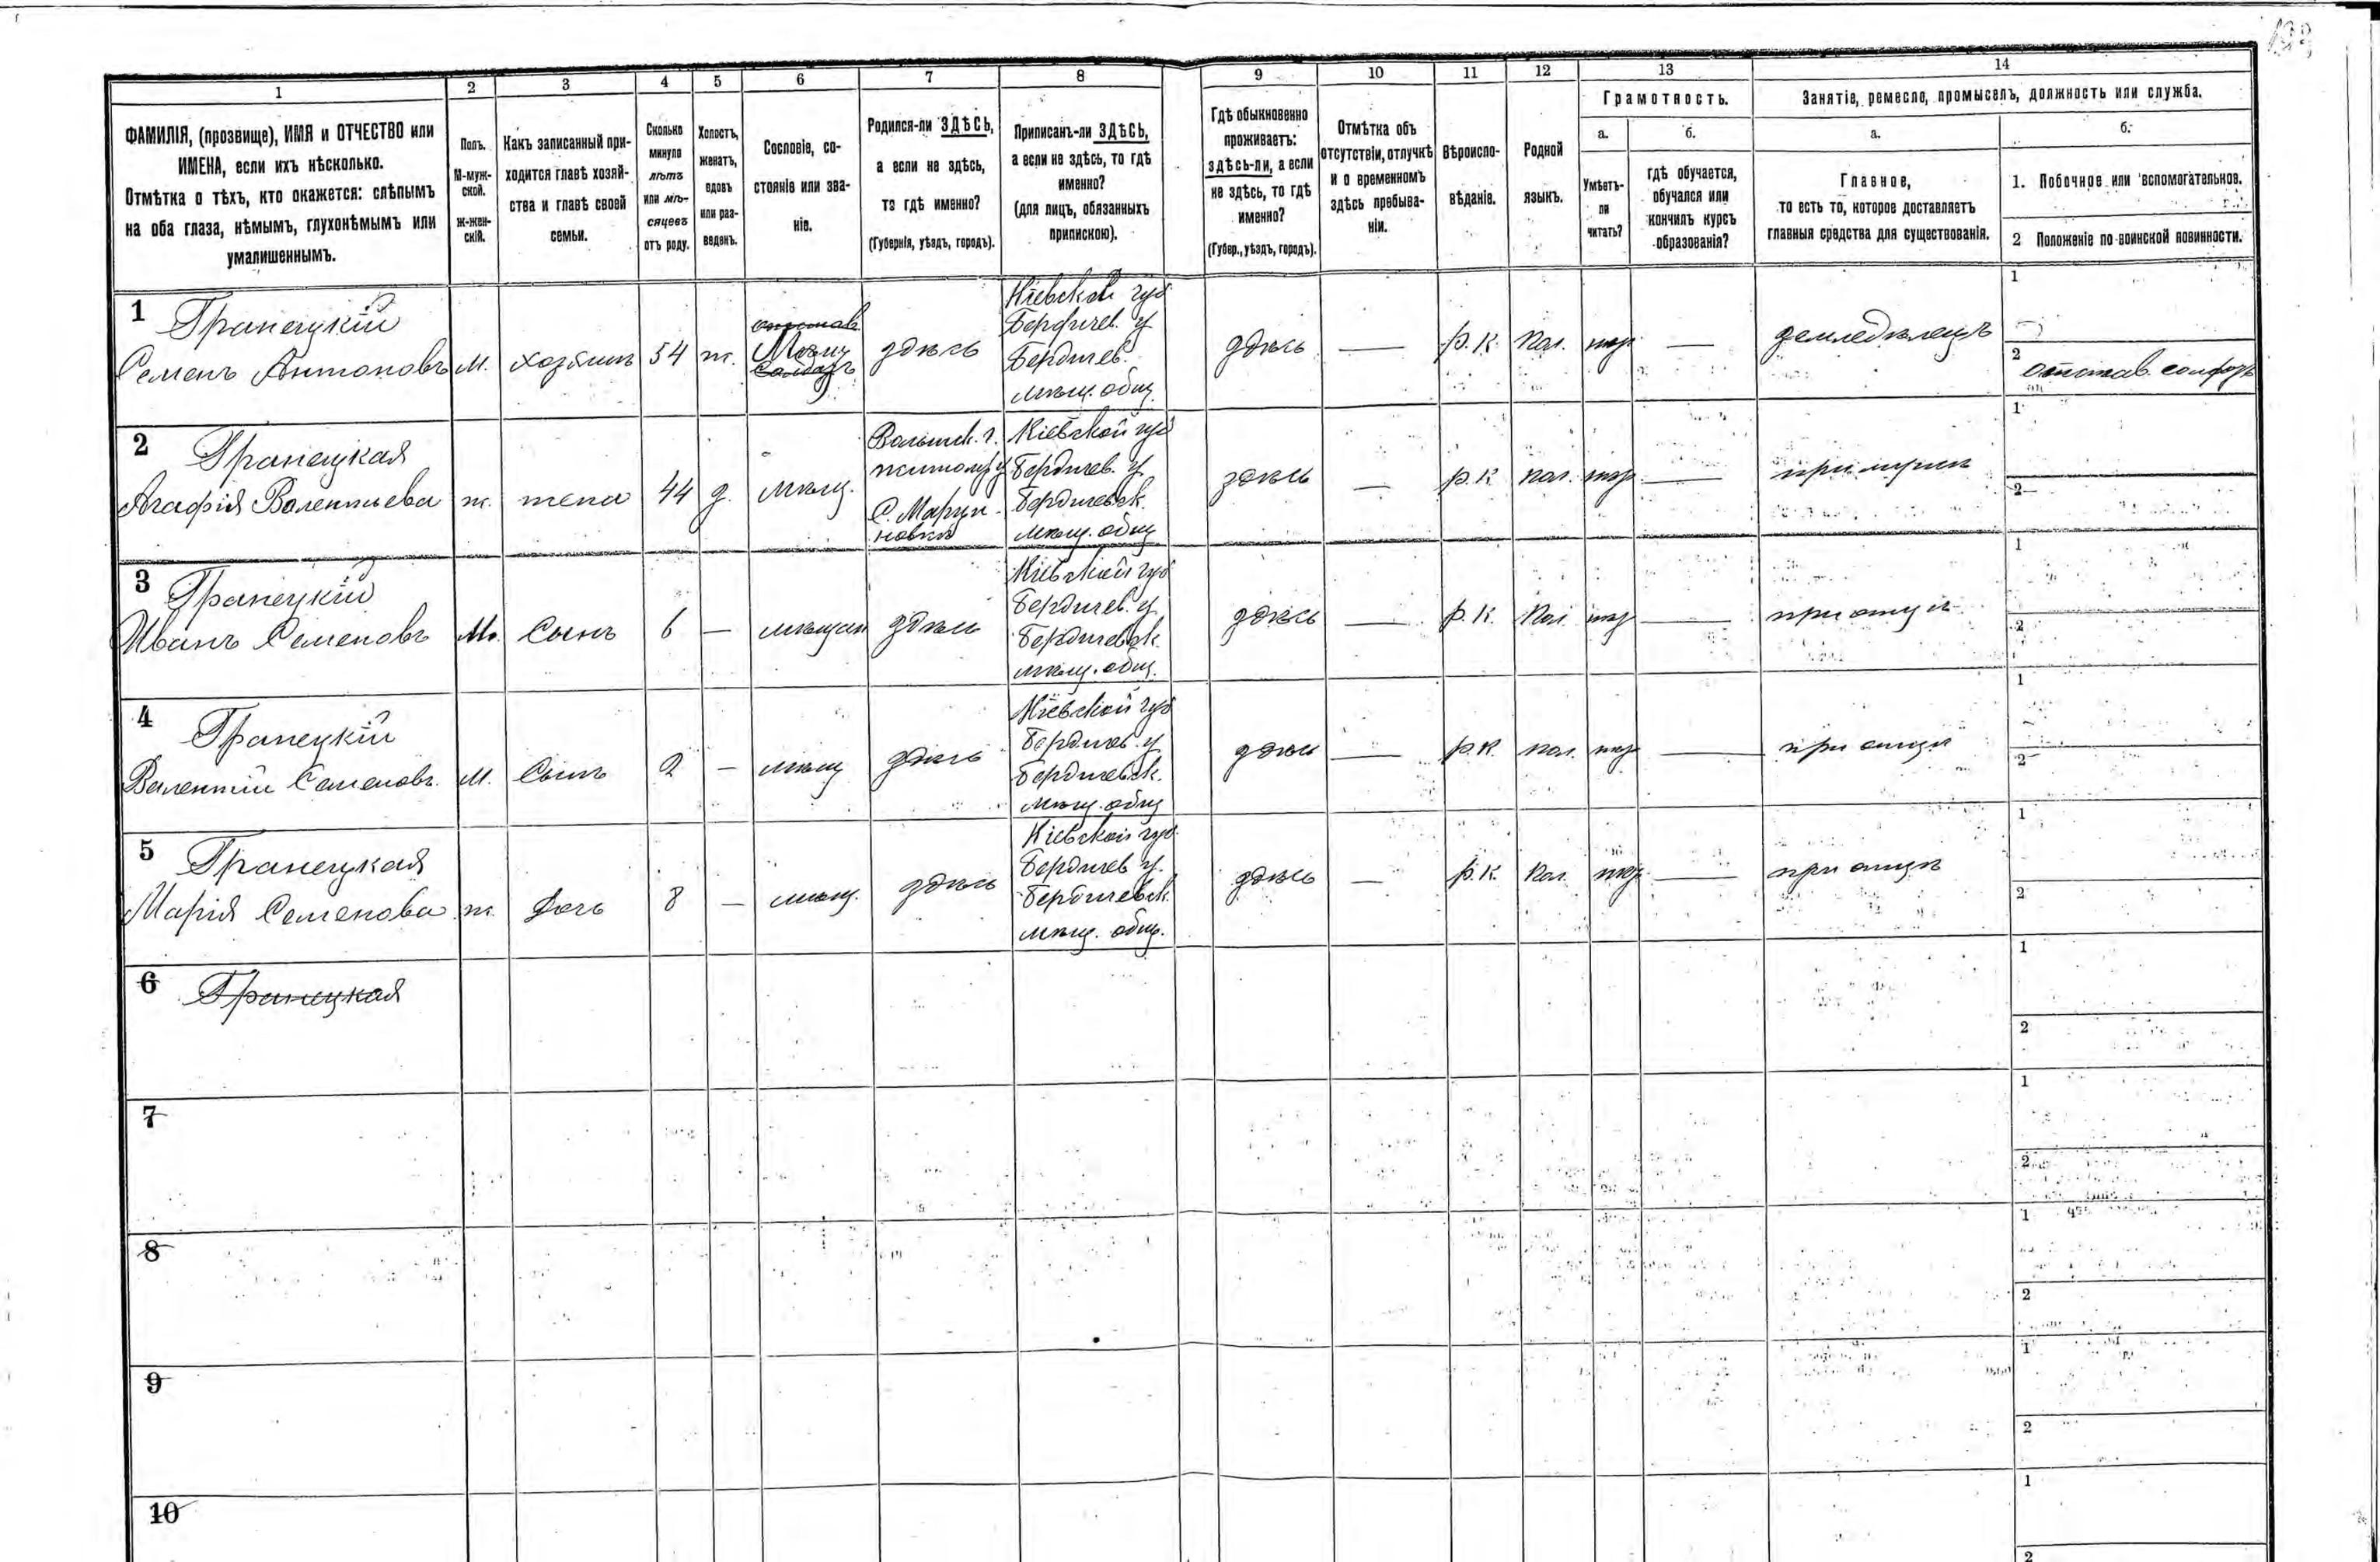 1
2
3
4
5
6
7
8
9
10
11
12
13
14
ФАМИЛІЯ, (прозвище), ИМЯ и ОТЧЕСТВО или
ИМЕНА, если ихъ нѣсколько.
Отмѣтка о тѣхъ, кто окажется: слѣпымъ
на оба глаза, нѣмымъ, глухонѣмымъ или
умалишеннымъ.
Полъ.
М-муж-
ской.
ж-жен-
скій.
Какъ записанный при-
ходится главѣ хозяй-
ства и главѣ своей
семьи.
Сколько
минуло
лѣтъ
или мѣ-
сяцевъ
отъ роду.
Холостъ,
женатъ,
вдовъ
или раз-
веденъ.
Сословіе, со-
стояніе или зва-
ніе.
Родился-ли ЗДѢСЬ,
а если не здѣсь,
то гдѣ именно?
(Губернія, уѣздъ, городъ).
Приписанъ-ли ЗДѢСЬ,
а если не здѣсь, то гдѣ
именно?
(для лицъ, обязанныхъ
припискою).
Гдѣ обыкновенно
проживаетъ:
здѣсь-ли, а если
не здѣсь, то гдѣ
именно?
(Губер., уѣздъ, городъ).
Отмѣтка объ
отсутствіи, отлучкѣ
и о временномъ
здѣсь пребыва-
ніи.
Вѣроиспо-
вѣданіе.
Родной
языкъ.
Грамотность.
а.
Умѣетъ-
ли
читать?
б.
гдѣ обучается,
обучался или
кончилъ курсъ
образованія?
Занятіе, ремесло, промыселъ, должность или служба.
а.
Главное,
то есть то, которое доставляетъ
главныя средства для существованія.
б.
1. Побочное или вспомогательное.
2 Положеніе по воинской повинности.
1 Гранецкій
Семенъ Антоновъ
М.
хозяинъ
54
ж.
отстав
Мѣщ
Солдатъ
здѣсь
Кіевской губ
Бердичев. у
Бердичев.
мѣщ. общ.
здѣсь
—
р. к.
пол.
—
земледѣлецъ
1
2
отстав. солдатъ
2 Гранецкая
Агафія Валентьева
ж.
жена
44
з.
мѣщ.
Волынск. г.
житомір у
С. Марья-
новка
Кіевской губ
Бердичев. у
Бердичевск.
мѣщ. общ
здѣсь
—
р. к
пол.
—
при мужѣ
1
2
3 Гранецкій
Иванъ Семеновъ
М.
Сынъ
6
—
мѣщан
здѣсь
Кіевской губ
Бердичев. у
Бердичевск.
мѣщ. общ.
здѣсь
—
р. к.
пол.
—
при отцѣ
1
2
4 Гранецкій
Валентій Семеновъ.
М.
Сынъ
2
—
мѣщ
здѣсь
Кіевской губ
Бердичев. у
Бердичевск.
мѣщ. общ
здѣсь
—
р. к.
пол.
—
при отцѣ
1
2
5 Гранецкая
Марія Семенова
ж.
Дочь
8
—
мѣщ.
здѣсь
Кіевской губ.
Бердичев у.
Бердичевск.
мѣщ. общ.
здѣсь
—
р. к.
пол.
—
при отцѣ
1
2
6 Гранецкая
1
2
7
1
2
8
1
2
9
1
2
10
1
2